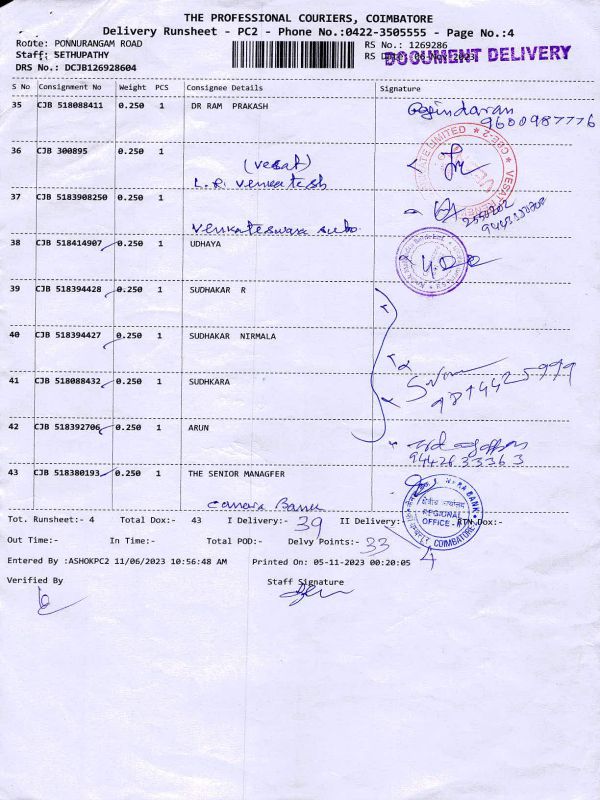 THE PROFESSIONAL COURIERS, COIMBATORE
Delivery Runsheet - PC2 - Phone No.:0422-3505555 - Page No.:4
Route: PONNURANGAM ROAD
RS No.: 1269286
Staff: SETHUPATHY
RS Date: 06-Nov-2023
DOCUMENT DELIVERY
DRS No.: DCJB126928604
S No Consignment No Weight PCS Consignee Details Signature
35 CJB 518088411 0.250 1 DR RAM PRAKASH
9600987776
36 CJB 300895 0.250 1
(vesat)
L.R. Venkatesh
37 CJB 3783908250 0.250 1
2550202
Venkateswara subo
38 CJB 518414907 0.250 1 UDHAYA
39 CJB 518394428 0.250 1 SUDHAKAR R
40 CJB 518394427 0.250 1 SUDHAKAR NIRMALA
41 CJB 518088432 0.250 1 SUDHKARA
9814425999
42 CJB 518392706 0.250 1 ARUN
9442633363
43 CJB 518380193 0.250 1 THE SENIOR MANAGFER
canara Bank
REGIONAL
OFFICE
COIMBATORE
Tot. Runsheet:- 4 Total Dox:- 43 I Delivery:- 39 II Delivery:- 4 RTN Dox:-
Out Time:- In Time:- Total POD:- Delvy Points:- 33
Entered By :ASHOKPC2 11/06/2023 10:56:48 AM Printed On: 05-11-2023 00:20:05
Verified By Staff Signature